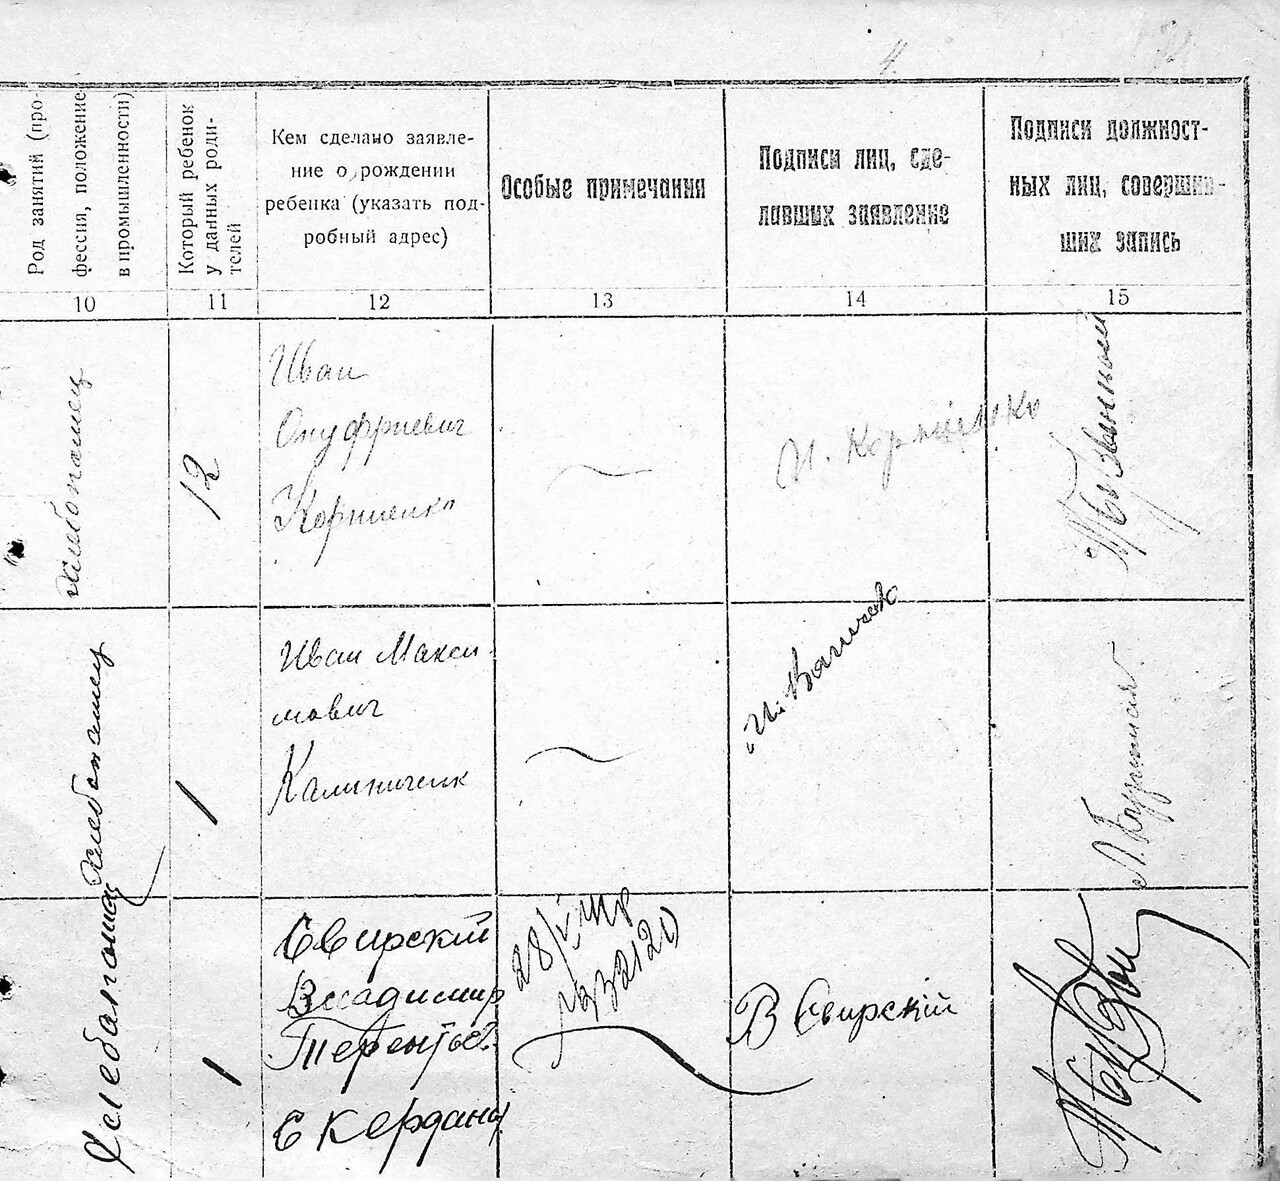 4.
Род занятий (про-
фессия, положение
в промышленности)
Который ребенок
у данных роди-
телей
Кем сделано заявле-
ние о рождении
ребенка (указать под-
робный адрес)
Особые примечания
Подписи лиц, сде-
лавших заявление
Подписи должност-
ных лиц, соверши-
ших запись
10 11 12 13 14 15
хлебопашец
12
Иван
Онуфриевич
Корниенко
И. Корниенко
хлебопашец
1
Иван Макси
мович
Калиниченк
хлебопашец
1
Свирский
Владимир
Терентьев
с Кердани
28/
В Свирскій